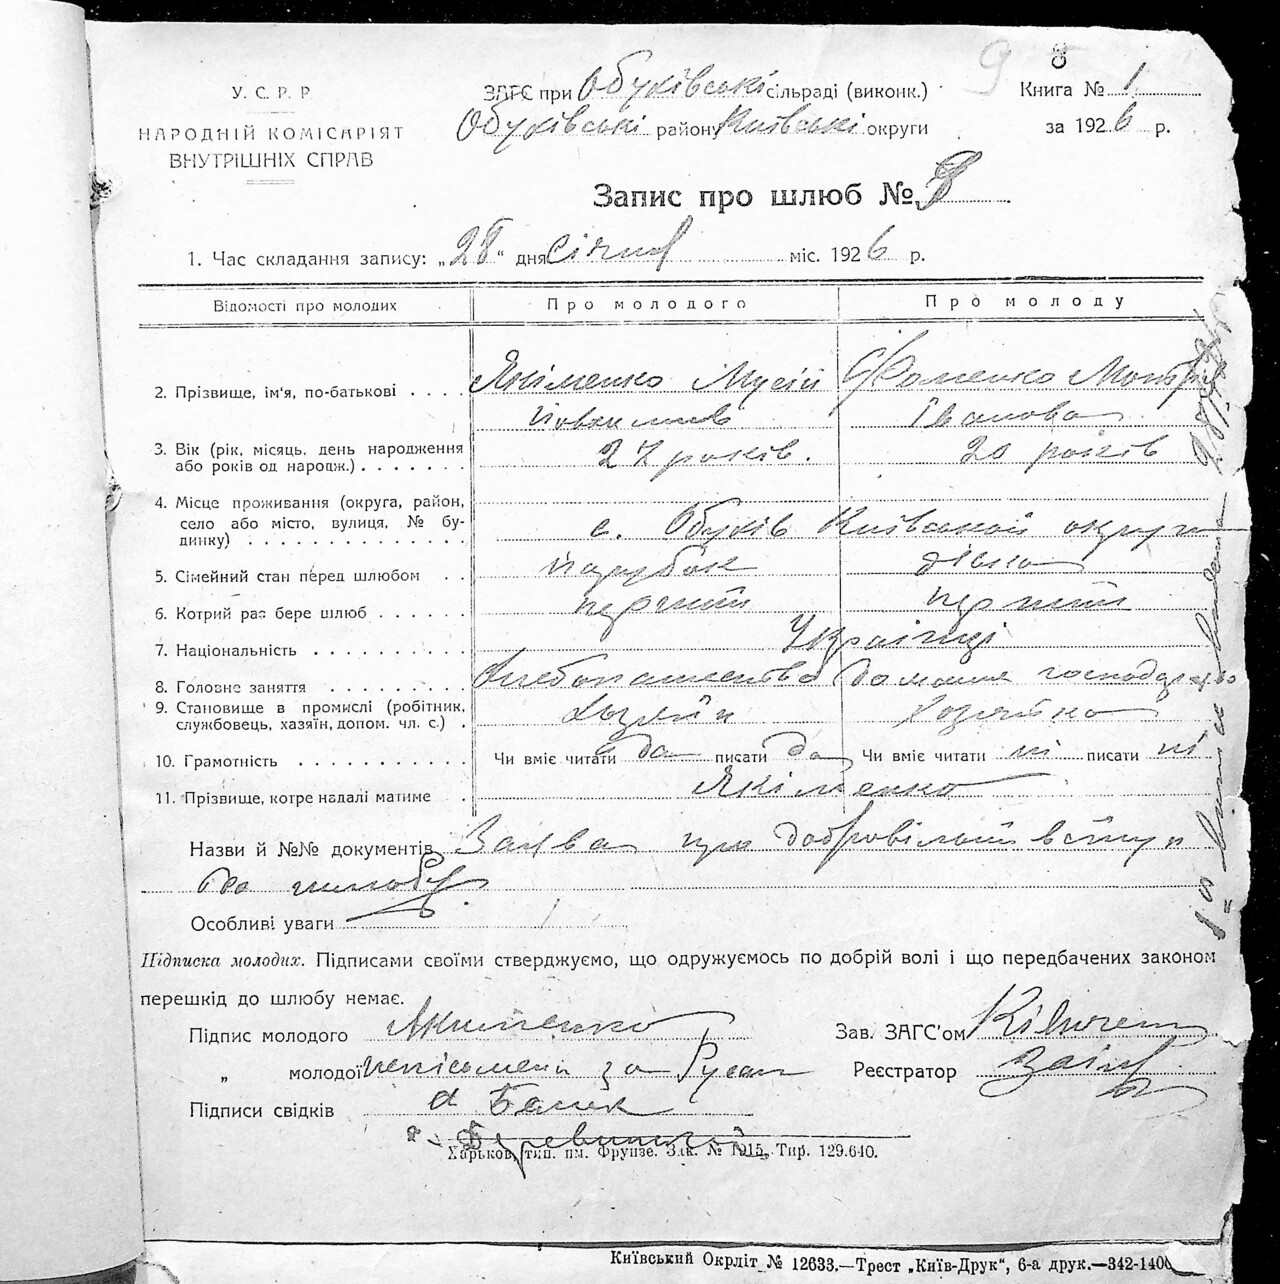 У. С. Р. Р.
НАРОДНІЙ КОМІСАРІЯТ
ВНУТРІШНІХ СПРАВ
ЗАГС при Обухівські сільраді (виконк.)
Обухівські району Київські округи
Книга № 1
за 1926 р.
Запис про шлюб № 8
1. Час складання запису: „28“ дня Січня міс. 1926 р.
Відомості про молодих Про молодого Про молоду
2. Прізвище, ім'я, по-батькові . . . . Якіменко Мусій Фоменко Мотря
Іванова
3. Вік (рік, місяць, день народження 27 років. 20 років
або років од народж.) . . . . . . .
4. Місце проживання (округа, район,
село або місто, вулиця, № бу- с. Обухів Київської округи
динку) . . . . . . . . . . . . . .
5. Сімейний стан перед шлюбом . . парубок дівка
6. Котрий раз бере шлюб . . . . . . перший перший
7. Національність . . . . . . . . . . Українці
8. Головне заняття . . . . . . . . . Хлебопашество домашне господарство
9. Становище в промислі (робітник, Хазяїн Хозяйка
службовець, хазяїн, допом. чл. с.) .
10. Грамотність . . . . . . . . . . . Чи вміє читати да писати да Чи вміє читати ні писати ні
11. Прізвище, котре надалі матиме . Якіменко
Назви й №№ документів Заява про добровільний вступ
до шлюбу.
Особливі уваги
Підписка молодих. Підписами своїми стверджуємо, що одружуємось по добрій волі і що передбачених законом
перешкід до шлюбу немає.
Підпис молодого Якименко Зав. ЗАГС'ом
„ молодої за Реєстратор
Підписи свідків
Харьков, тип. им. Фрунзе. Зак. № 1915. Тир. 129.640.
Київський Окрліт № 12633.—Трест „Київ-Друк“, 6-а друк.—342-1400